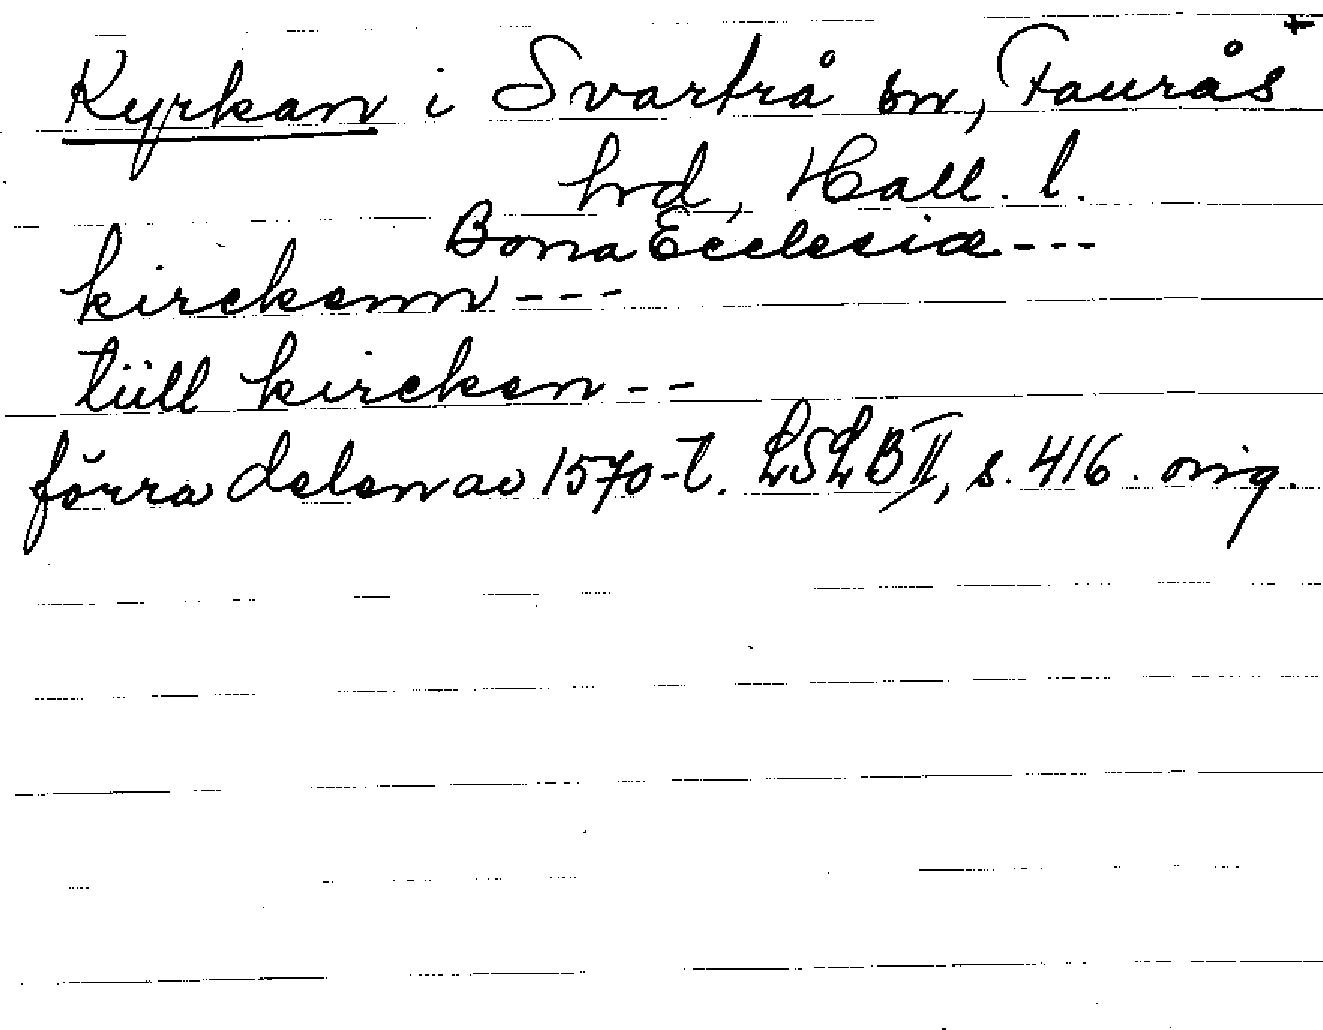 Kyrkan i Svartrå sn, Faurås
hrd, Hall. l.
Bona Ecclesiæ ---
kirckenn ---
tüll kircken --
förra delen av 1570-t. LSLB II, s. 416. orig.